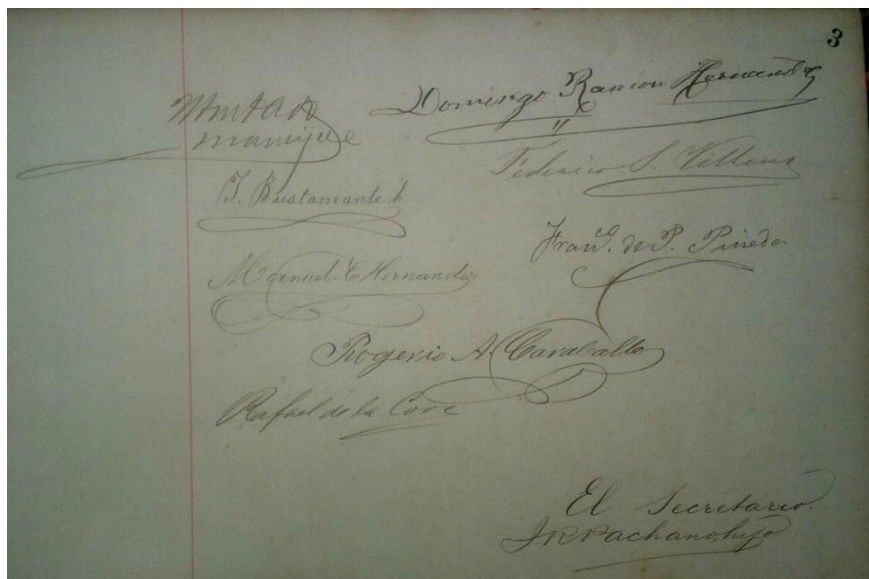 3
Domingo Ramon Hernandez
Manrique
Federico S. Villena
J. Bustamante h
Franco. de P. Pineda
Manuel E Hernandez
Rogerio A. Caraballo
Rafael de la Cova
El Secretario.
J R Pachano, hijo